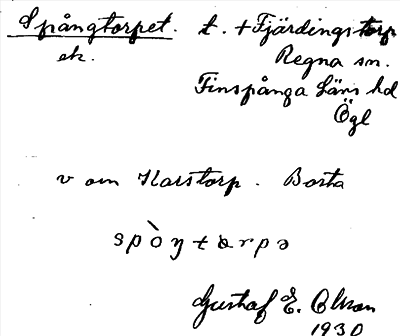 Spångtorpet. t. + Fjärdingstorp
ek. Regna sn.
Finspånga läns hd
Ögl
v om Karstorp. Borta
spò̀ŋtɑrpə
Gustaf E. Olsson
1930